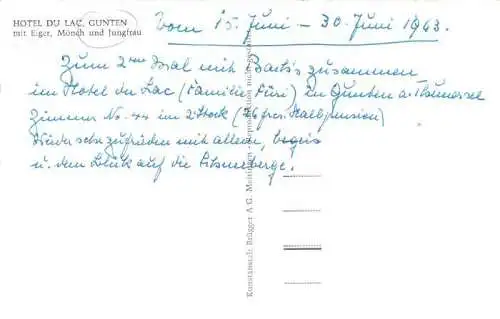 HOTEL DU LAC, GUNTEN
mit Eiger, Mönch und Jungfrau
Vom 15. Juni – 30. Juni 1963.
Zum 2ten Mal mit zusammen
im Hotel du Lac (Familie) in Gunten a. Thunersee
Zimmer No. 44 im 2. Stock (26 frcs. Halbpension)
Wieder sehr zufrieden mit allem,
u. dem Blick auf die
Kunstanstalt Brügger A. G. Meiringen - Reproduktion nicht gestattet